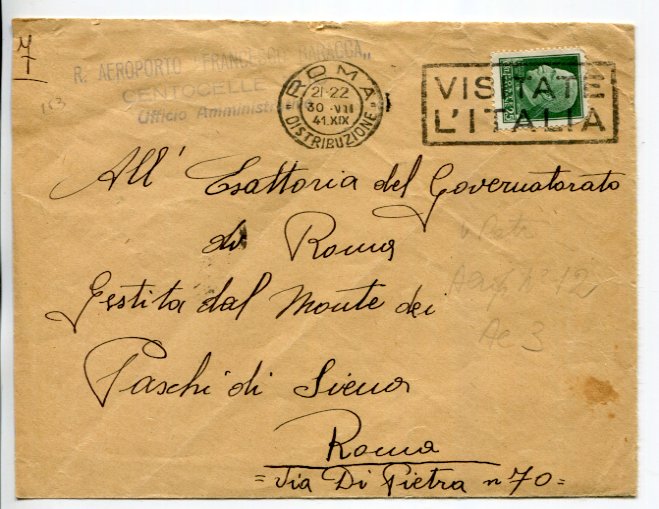 M
T
R. AEROPORTO "FRANCESCO BARACCA"
CENTOCELLE
Ufficio Amministrazione
153
ROMA
21-22
30 · VII
41. XIX
DISTRIBUZIONE
VISITATE
L'ITALIA
All' Esattoria del Governatorato
di Roma
Gestita dal Monte dei
Paschi di Siena
Roma
= Via Di Pietra n 70 =
N° 12
Ac 3